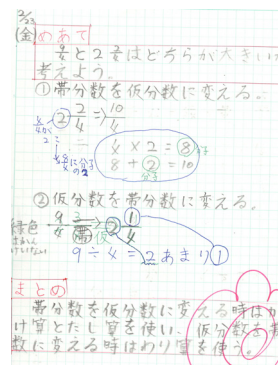 2/23
(金)
めあて
9/4と2 2/4はどちらが大きいか
考えよう。
①帯分数を仮分数に変える。
2 2/4 ⇒ 10/4
4×2=8
8+2=10
分子
②仮分数を帯分数に変える。
9/4 ⇒ 2 1/4
緑色
帯 仮
9÷4=2あまり1
まとめ
帯分数を仮分数に変える時はか
け算とたし算を使い、仮分数を帯
数に変える時はわり算を使う。